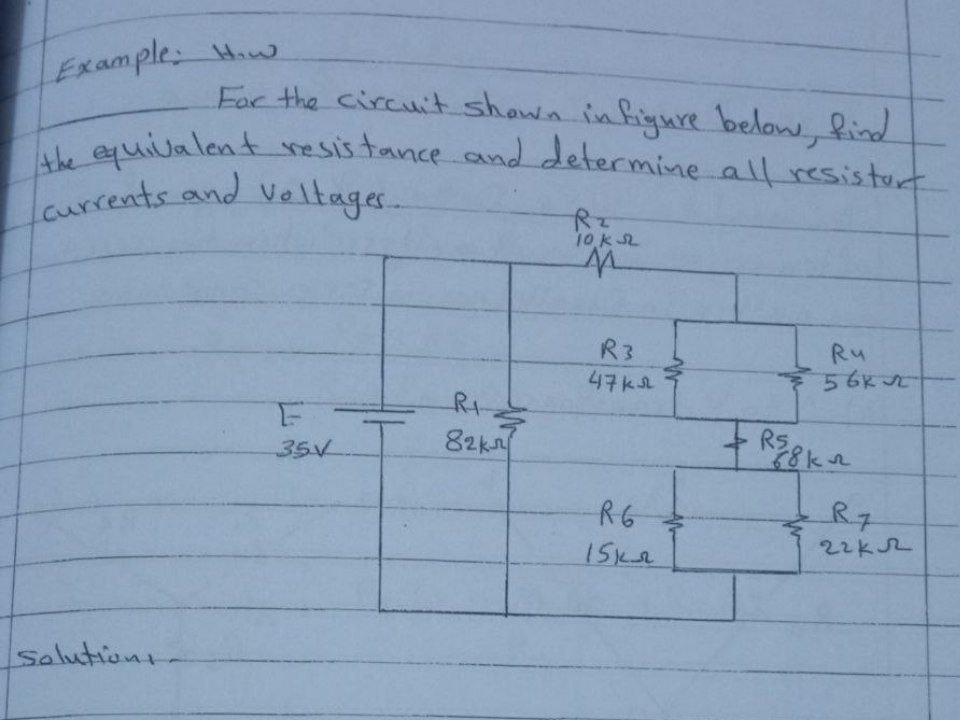 Example: H.W
For the circuit shown in figure below, find
the equivalent resistance and determine all resistor
currents and Voltages.
R2
10kΩ
R3
47kΩ
R4
56kΩ
E
35V
R1
82kΩ
R5
68kΩ
R6
15kΩ
R7
22kΩ
Solution:-